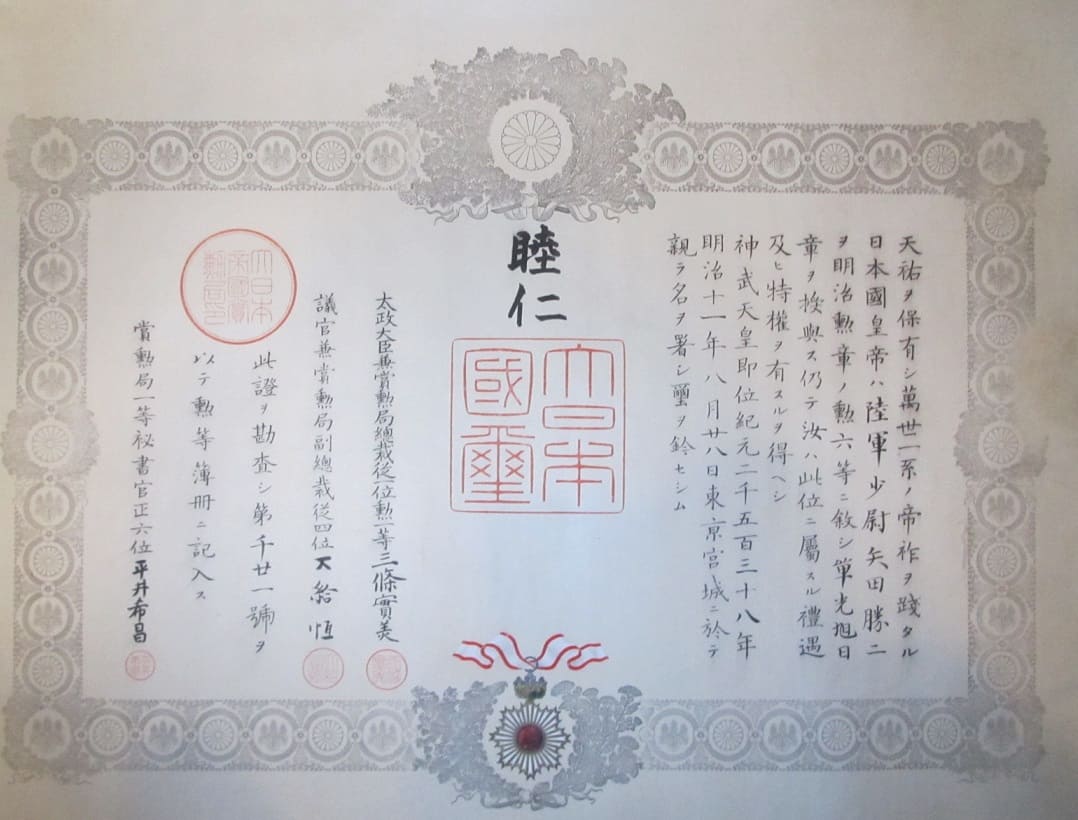 天祐ヲ保有シ萬世一系ノ帝祚ヲ踐タル
日本國皇帝ハ陸軍少尉矢田勝二
ヲ明治勲章ノ勲六等ニ敘シ單光旭日
章ヲ授與ス仍テ汝ハ此位ニ屬スル禮遇
及ヒ特權ヲ有スルヲ得ヘシ
神武天皇即位紀元二千五百三十八年
明治十一年八月廿八日東亰宮城ニ於テ
親ラ名ヲ署シ璽ヲ鈐セシム
睦仁
大日本
國璽
太政大臣兼賞勲局總裁從一位勲一等三條實美
議官兼賞勲局副總裁從四位大給恒
大日本
帝國賞
勲局印
此證ヲ勘査シ第千廿一號ヲ
以テ勲等簿册ニ記入ス
賞勲局一等祕書官正六位平井希昌